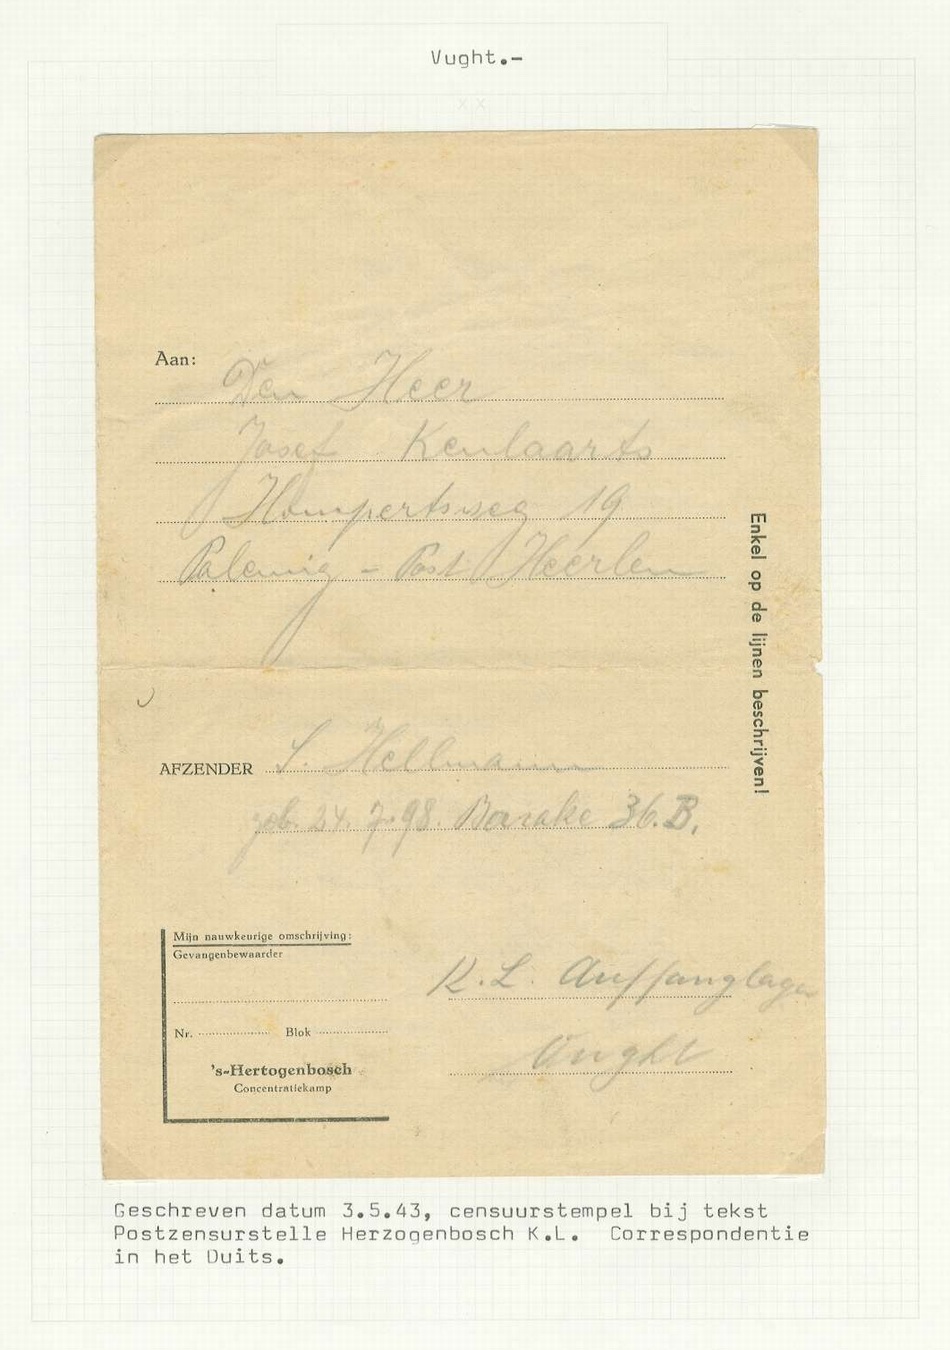 Vught.-
Aan:
Den Heer
Josef Keulaarts
Hompertsweg 19
Palemig - Post Heerlen
Enkel op de lijnen beschrijven!
AFZENDER S. Hellmann
geb. 24. 7. 98. Barake 36.B.
Mijn nauwkeurige omschrijving:
Gevangenbewaarder
K.L. Auffanglager
Nr. Blok
Vught
's-Hertogenbosch
Concentratiekamp
Geschreven datum 3.5.43, censuurstempel bij tekst
Postzensurstelle Herzogenbosch K.L. Correspondentie
in het Duits.